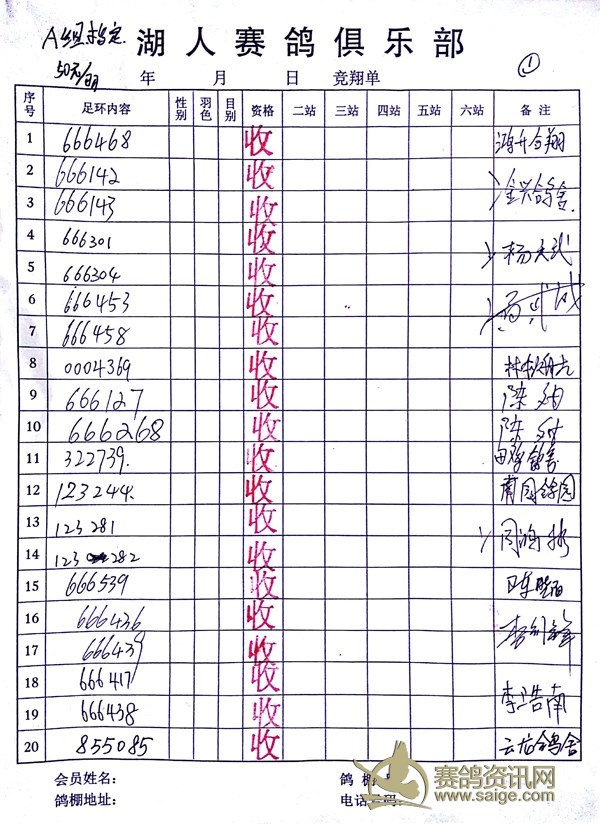 A组指定 湖人赛鸽俱乐部
50元/羽 年 月 日 竞翔单 ①
序号 足环内容 性别 羽色 目别 资格 二站 三站 四站 五站 六站 备注
1 666468 收 鸿升合翔
2 666142 收
3 666143 收 金兴鸽舍
4 666301 收
5 666304 收
6 666453 收
7 666458 收
8 0004369 收
9 666127 收
10 666268 收
11 322739. 收
12 123244. 收
13 123281 收
14 123 282 收
15 666539 收
16 666436 收
17 666439 收
18 666417 收
19 666438 收 李浩南
20 855085 收 云龙鸽舍
会员姓名: 鸽棚
鸽棚地址: 电话号码:
赛鸽资讯网
www.saige.com